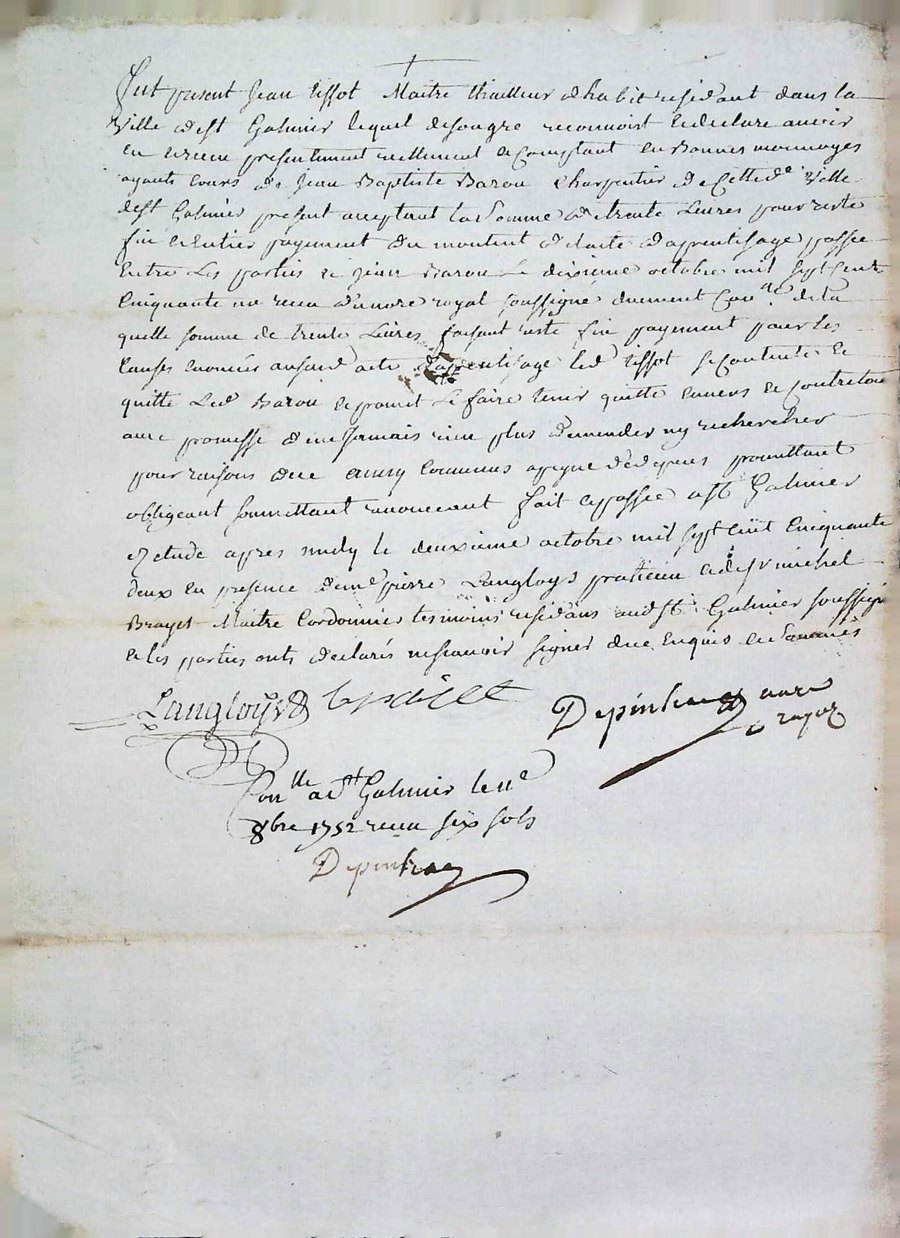 Fut present Jean tissot Maitre thailleur dhabit residant dans la
Ville de st Galmier lequel de son gre reconnoist et declare auoir
eu et receu presentement reellement et Comptant en Bonnes monnoyes
ayants cours de Jean Baptiste Barou charpentier de Cette de Ville
de st Galmier present acceptant la somme de trente Liures pour reste
fin et entier payement du montent de lacte daprentisage passée
Entre Les parties et Jean Barou Le dixieme octobre mil sept Cent
Cinquante un receu du nore royal soussigné duement Conllé de la
quelle somme de trente Liures faisant reste fin payement pour les
Causes enoncées aususd acte d'aprentisage led tissot se Contente et
quitte Led Barou et promet Le faire tenir quitte enuers et contre tous
auec promesse de ne Jamais rien plus demender ny rechercher
pour raisons de ce ainsy Conuenus a peyne de depens promettant
obligeant soumettant renonceant fait et passée a st Galmier
Etude apres midy le deuxieme octobre mil sept Cent Cinquante
deux en presence de me pierre Langloys praticien et de sr michel
Brayet Maitre Cordonnier tesmoins residans aud st Galmier soussignés
et les parties onts declarés ne scauoir signer de ce Enquis et sommés
Langloys Brayet
Depinhac nore
royal
Conlle a st Galmier le 11e
8bre 1752 receu six sols
Depinhac